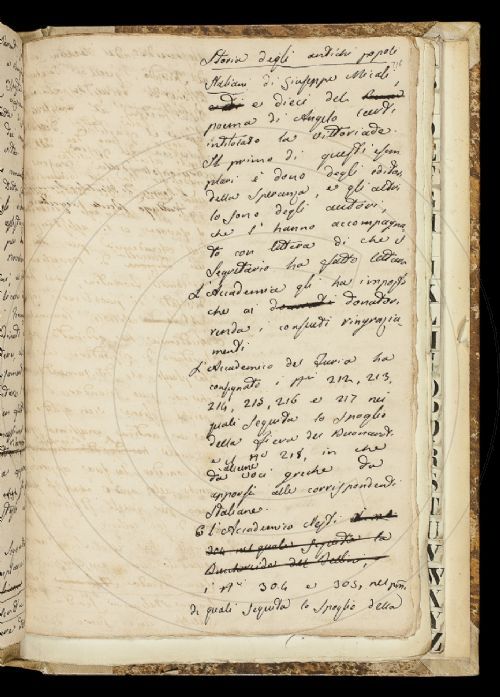 Storia degli antichi popoli
Italiani di Giuseppe Micali,
e dieci del
poema di Angelo Curti
intitolato la Vittoriade.
Il primo di questi esem
plari è dono degli editori
della Speranza e gli altri
lo sono degli autori,
che l'hanno accompagna
to con lettera di che il
Segretario ha fatto lettura
L'Accademia gli ha imposto
che ai donatori
renda i consueti ringrazia
menti
L'Accademico del Furia ha
consegnato i Nri 212, 213,
214, 215, 216 e 217 nei
quali seguita lo Spoglio
della Fiera del Buonarroti
e il No 218, in che
dà alcune voci greche da
apporsi alle corrispondenti
Italiane.
E l'Accademico Nesti
304 nel quale seguita lo
del Bellini,
i Nri 304 e 305, nel primo
di quali seguita lo Spoglio della
L O P Q R S T U V W X Y Z